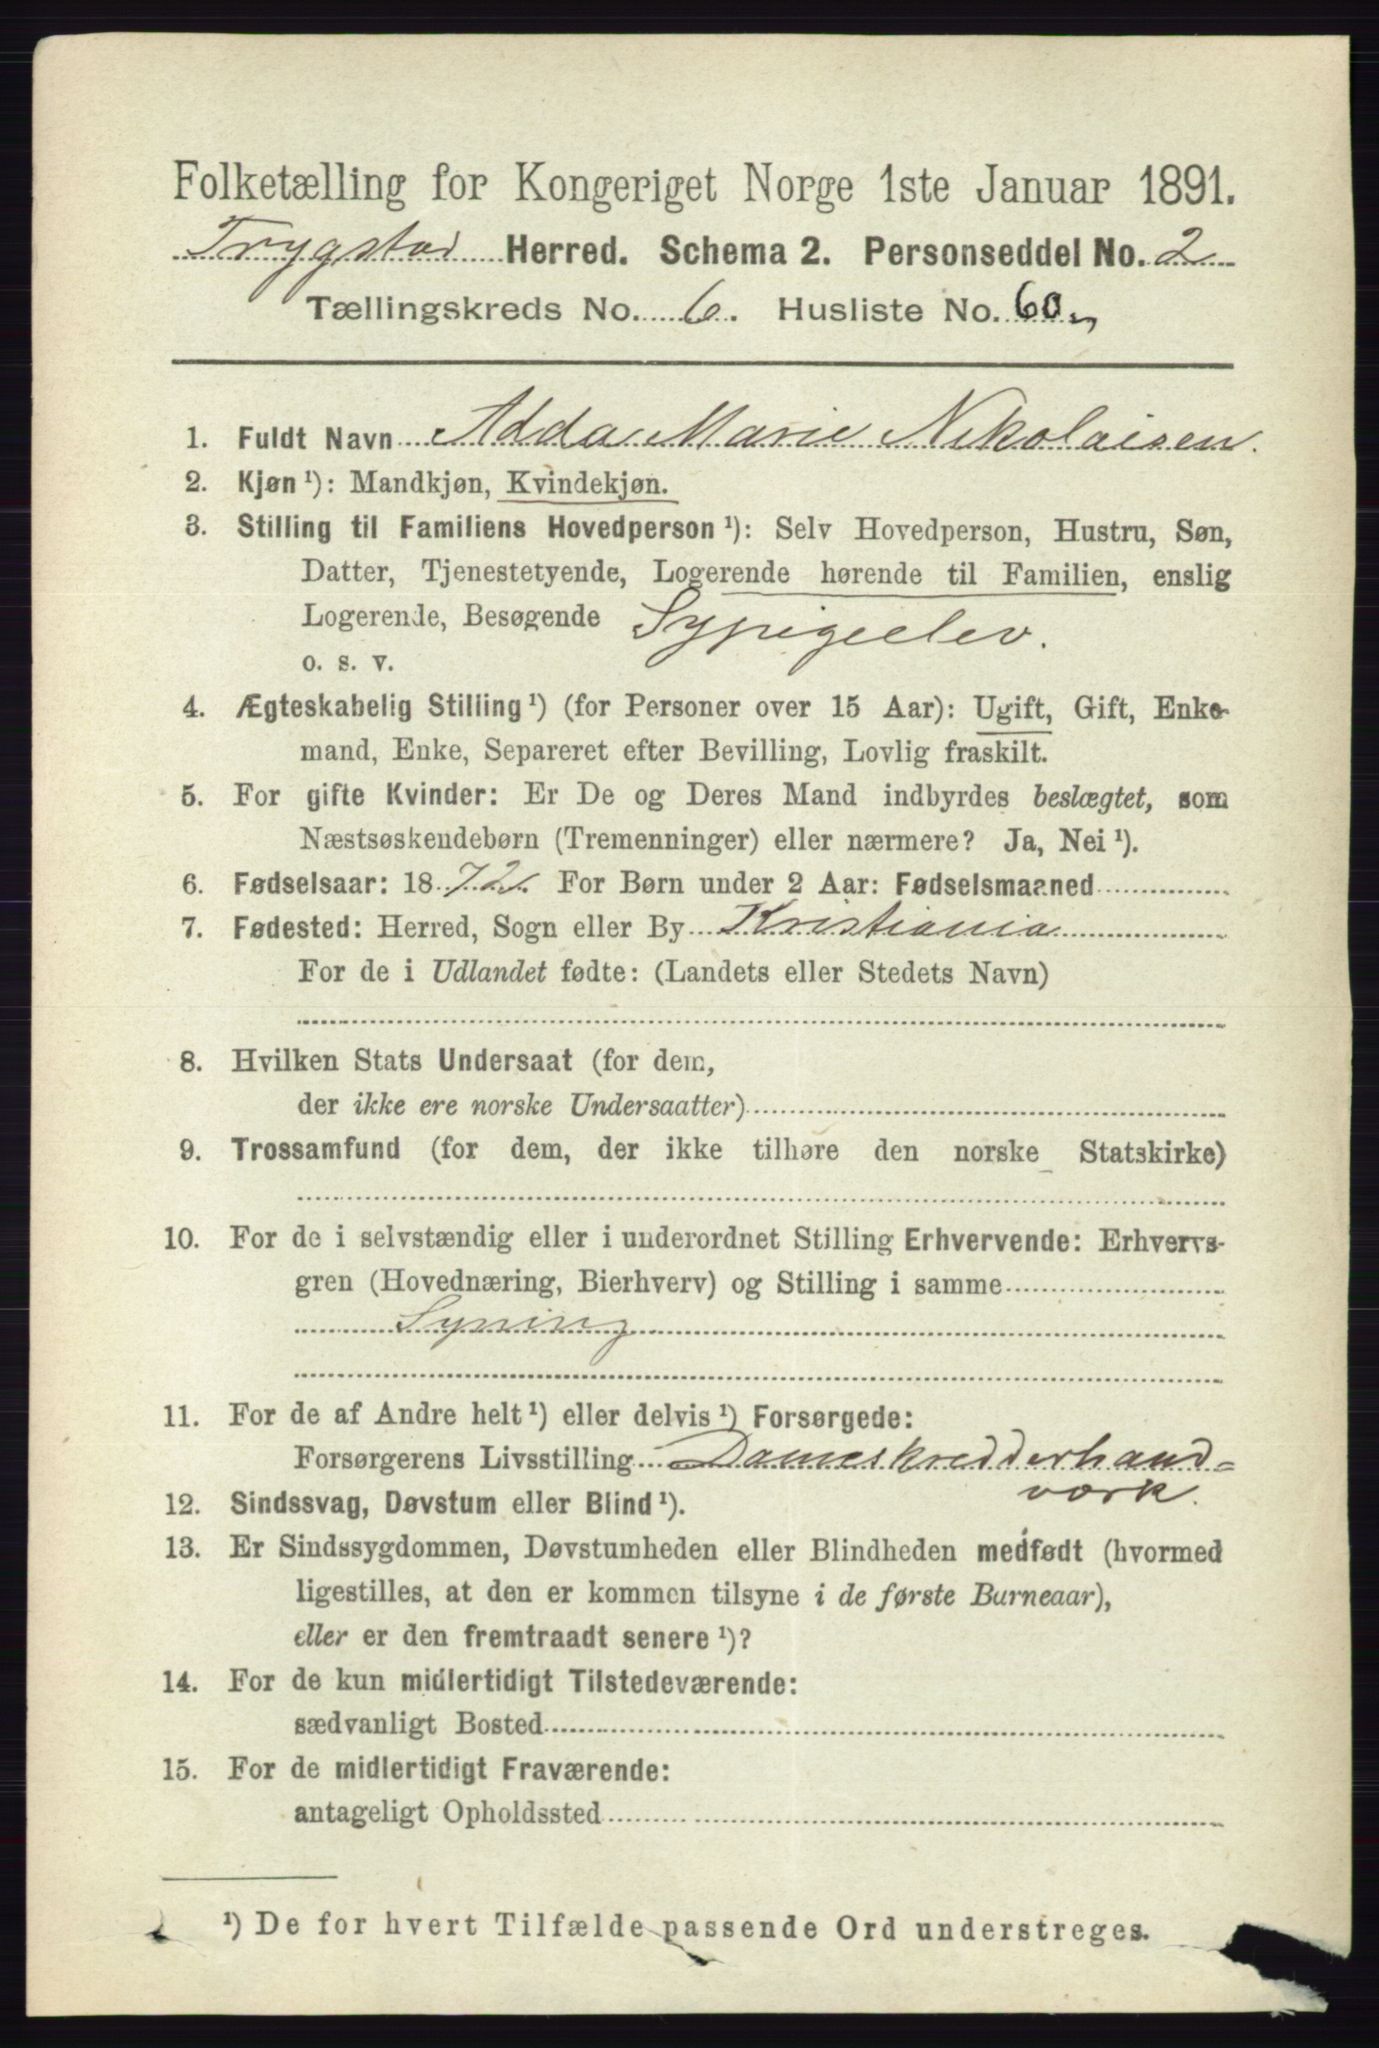 Folketælling for Kongeriget Norge 1ste Januar 1891.
Trygstad Herred. Schema 2. Personseddel No. 2
Tællingskreds No. 6. Husliste No. 60.
1. Fuldt Navn Adda Marie Nikolaisen.
2. Kjøn ¹): Mandkjøn, Kvindekjøn.
3. Stilling til Familiens Hovedperson ¹): Selv Hovedperson, Hustru, Søn,
Datter, Tjenestetyende, Logerende hørende til Familien, enslig
Logerende, Besøgende Sypigeelev.
o. s. v.
4. Ægteskabelig Stilling ¹) (for Personer over 15 Aar): Ugift, Gift, Enke-
mand, Enke, Separeret efter Bevilling, Lovlig fraskilt.
5. For gifte Kvinder: Er De og Deres Mand indbyrdes beslægtet, som
Næstsøskendebørn (Tremenninger) eller nærmere? Ja, Nei ¹).
6. Fødselsaar: 1872. For Børn under 2 Aar: Fødselsmaaned
7. Fødested: Herred, Sogn eller By Kristiania
For de i Udlandet fødte: (Landets eller Stedets Navn)
8. Hvilken Stats Undersaat (for dem,
der ikke ere norske Undersaatter)
9. Trossamfund (for dem, der ikke tilhøre den norske Statskirke)
10. For de i selvstændig eller i underordnet Stilling Erhvervende: Erhvervs-
gren (Hovednæring, Bierhverv) og Stilling i samme
Syning
11. For de af Andre helt ¹) eller delvis ¹) Forsørgede:
Forsørgerens Livsstilling Dameskredderhand-
værk.
12. Sindssvag, Døvstum eller Blind ¹).
13. Er Sindssygdommen, Døvstumheden eller Blindheden medfødt (hvormed
ligestilles, at den er kommen tilsyne i de første Barneaar),
eller er den fremtraadt senere ¹)?
14. For de kun midlertidigt Tilstedeværende:
sædvanligt Bosted
15. For de midlertidigt Fraværende:
antageligt Opholdssted
¹) De for hvert Tilfælde passende Ord understreges.